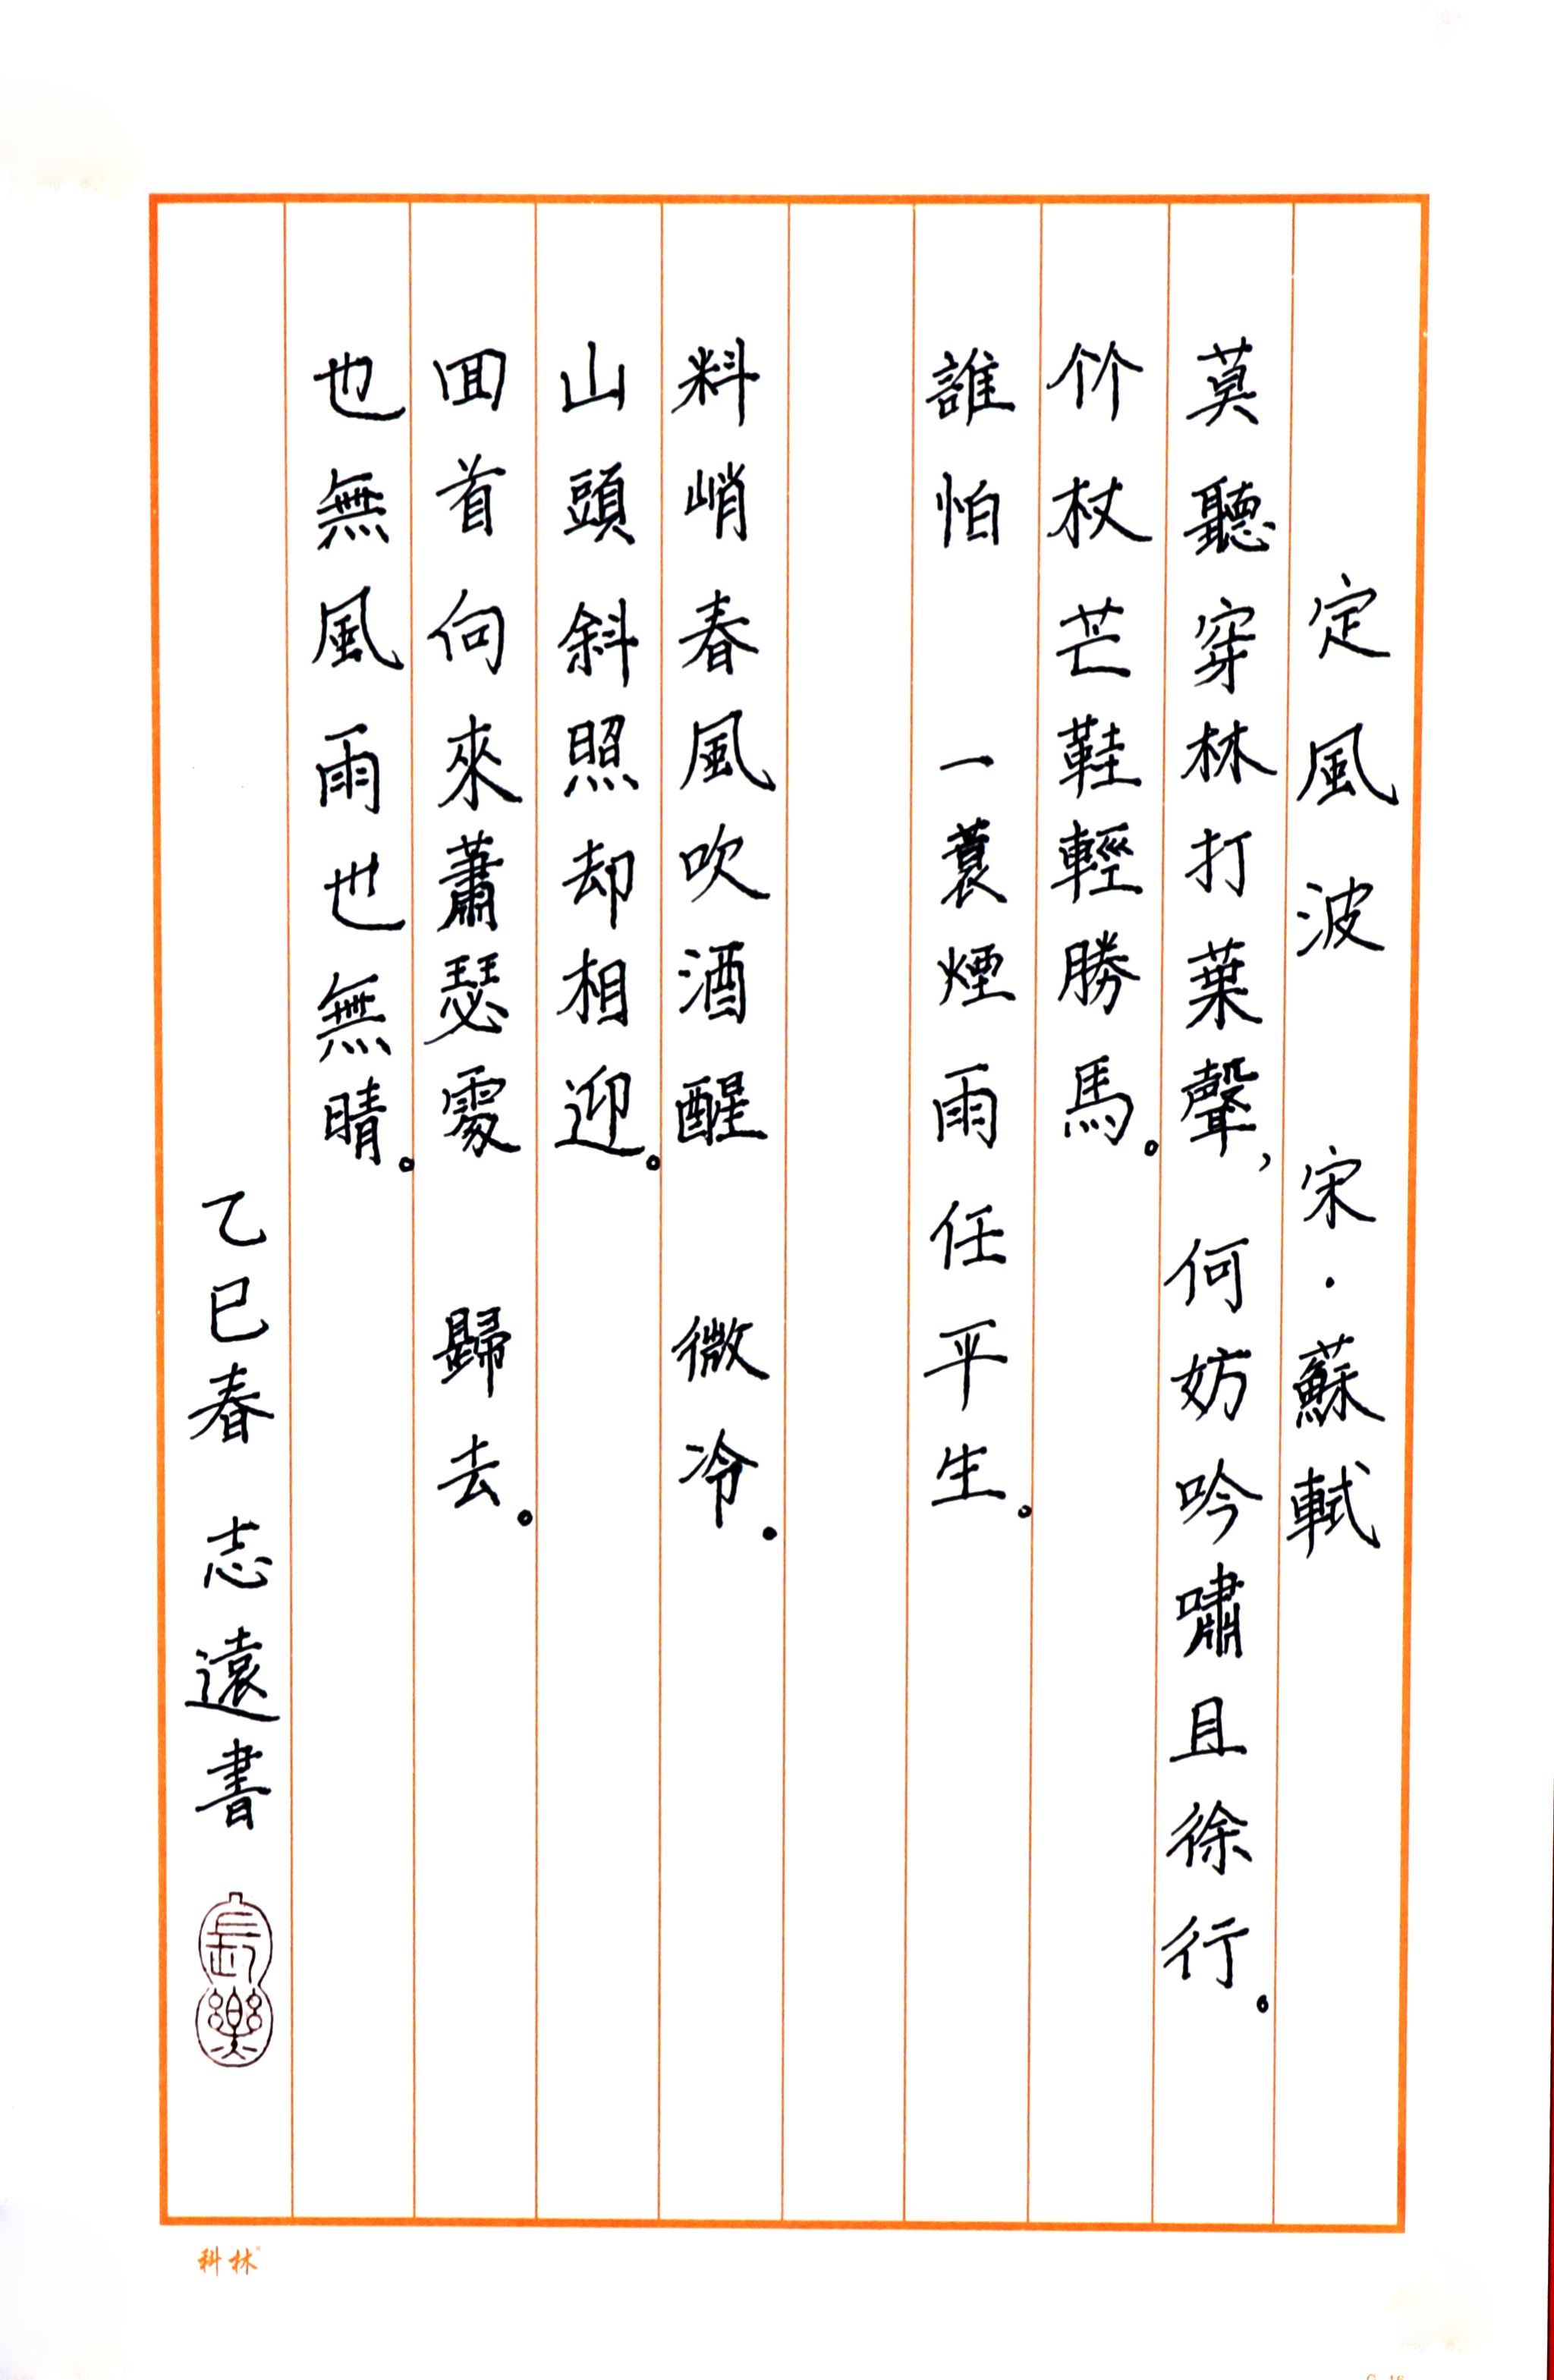 定風波 宋·蘇軾
莫聽穿林打葉聲，何妨吟嘯且徐行。
竹杖芒鞋輕勝馬。
誰怕 一蓑煙雨任平生。
料峭春風吹酒醒 微冷。
山頭斜照却相迎。
回首向來蕭瑟處 歸去。
也無風雨也無晴。
乙巳春 志遠書
長樂
科林